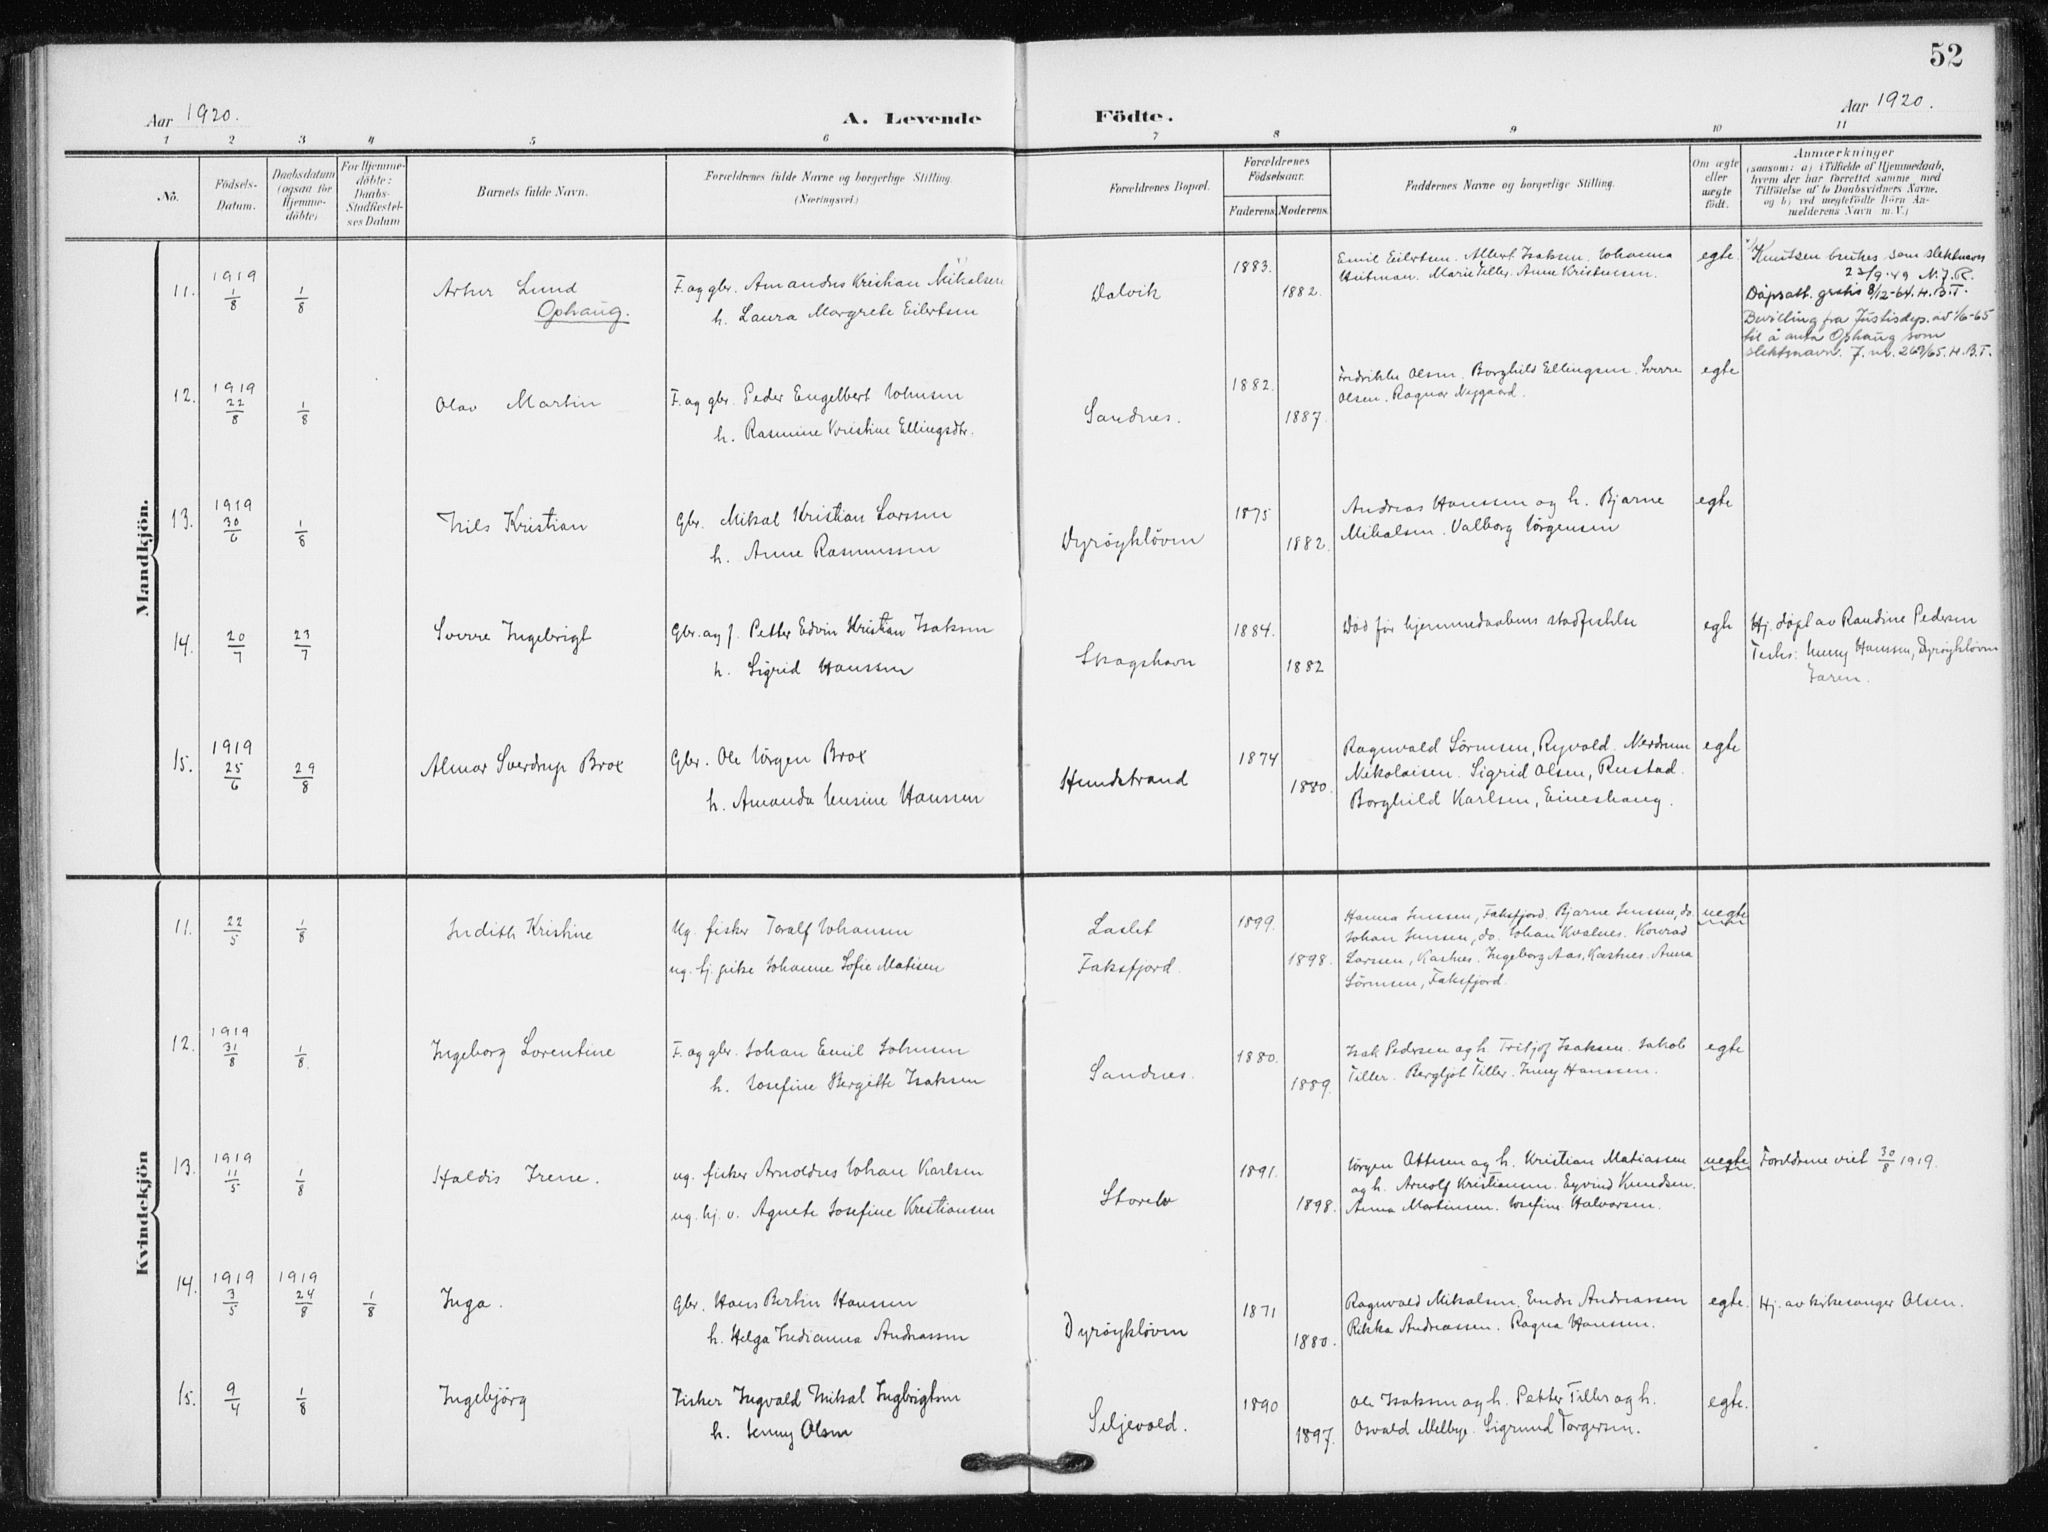 52
Aar 1920.
A. Levende
Födte.
Aar 1920.
1 2 3 4 5 6 7 8 9 10 11
No.
Födsels-
Datum.
Daabsdatum
(ogsaa for
Hjemme-
döbte)
For Hjemme-
döbte:
Daabs-
Stadfæstel-
ses Datum
Barnets fulde Navn.
Forældrenes fulde Navne og borgerlige Stilling.
(Næringsvei.)
Forældrenes Bopæl.
Forældrenes
Födselsaar.
Faderens. Moderens.
Faddernes Navne og borgerlige Stilling.
Om ægte
eller
uægte
födt.
Anmærkninger
(saasom: a) i Tilfælde af Hjemmedaab,
hvem der har forrettet samme med
Tilföielse af to Daabsvidners Navne.
og b) ved uægtefödte Börn An-
melderens Navn m. V.)
Mandkjön.
11. 1919 1/8 1/8
Artur Lund
Ophaug.
F. og gbr. Amandus Kristian Mikalsen
h. Laura Margrete Eilertsen
Dalvik
1883. 1882.
Emil Eilertsen. Albert Isaksen. Johanna
Hutman. Marie Tiller. Anne Kristensen.
egte.
Knutsen brukes som slektsnavn
23/9-49 N.J.R.
Dåpsatt. gratis 8/12-64. H.B.T.
Bevilling fra Justisdep. av 1/6-65
til å anta Ophaug som
slektsnavn. J. nr. 269/65. H.B.T.
12. 1919 22/8 1/8
Olav Martin
F. og gbr. Peder Engelbert Johnsen
h. Rasmine Kristine Ellingsdtr.
Sandnes.
1882. 1887.
Fredrikke Olsen. Borghild Ellingsen. Sverre
Olsen. Ragnar Nygaard.
egte
13. 1919 30/6 1/8
Nils Kristian
Gbr. Mikal Kristian Larssen
h. Anne Rasmussen
Dyrøykløven
1875 1882.
Andreas Hanssen og h. Bjarne
Mikalsen. Valborg Jørgensen
egte
14. 20/7 23/7
Sverre Ingebrigt
Gbr. og f. Petter Edvin Kristian Isaksen
h. Sigrid Hanssen
Skogshavn
1884. 1882
Død før hjemmedaabens stadfestelse
egte
Hj. døpt av Randine Pedersen
Testes: Jenny Hanssen, Dyrøykløven
Faren.
15. 1919 25/6 29/8
Almar Sverdrup Brox
Gbr. Ole Jørgen Brox
h. Amanda Jensine Hanssen
Hundstrand
1874 1880.
Ragnvald Sørensen, Ryvold. Nerdrum
Nikolaisen. Sigrid Olsen, Rustad.
Borghild Karlsen, Eineshaug.
egte
Kvindekjön
11. 22/5 1/8
Judith Kristine
Ug. fisker Toralf Johansen
ug. tj. pike Johanne Sofie Matisen
Laslet
Faksfjord.
1899. 1898.
Hanna Jenssen, Faksfjord. Bjarne Jenssen, do.
Johan Jenssen, do. Johan Kvalnes. Konrad
Larsen, Kastnes. Ingeborg Aas, Kastnes. Anna
Sörensen, Faksfjord.
uegte
12. 1919 31/8 1/8.
Ingeborg Lorentine
F. og gbr. Johan Emil Johnsen
h. Josefine Bergitte Isaksen
Sandnes.
1880. 1889.
Isak Pedersen og h. Tritjof Isaksen. Jakob
Tiller. Bergljot Tiller. Jenny Hanssen.
egte
13. 1919 11/5 1/8
Haldis Irene.
ug. fisker Arnoldus Johan Karlsen
ug. hj. v. Agnete Josefine Kristiansen
Storelv
1891. 1898.
Jørgen Ottesen og h. Kristian Matiassen
og h. Arnolf Kristiansen. Eyvind Knudsen.
Anna Martinsen. Josefine Halvorsen.
uegte
Foreldrene viet 30/8 1919.
14. 1919 3/5 1919 24/8 1/8
Inga.
Gbr. Hans Bertin Hanssen
h. Helga Indianna Andreassen
Dyrøykløven
1871 1880.
Ragnvald Mikalsen. Endre Andreassen
Rikka Andreassen. Ragna Hanssen.
egte.
Hj. av kirkesanger Olsen.
15. 9/4 1/8
Ingebjörg
Fisker Ingvald Mikal Ingbrigtsen
h. Jenny Olsen
Seljevold.
1890 1897.
Ole Isaksen og h. Petter Tiller og h.
Osvald Melbye. Sigrund Torgersen.
egte.